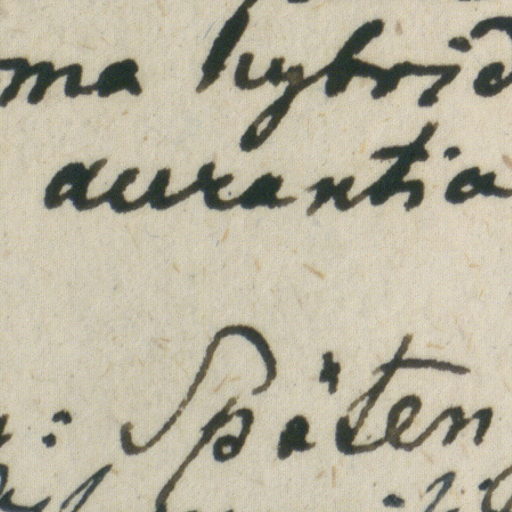 ma hybrid
aurantia
: Späten